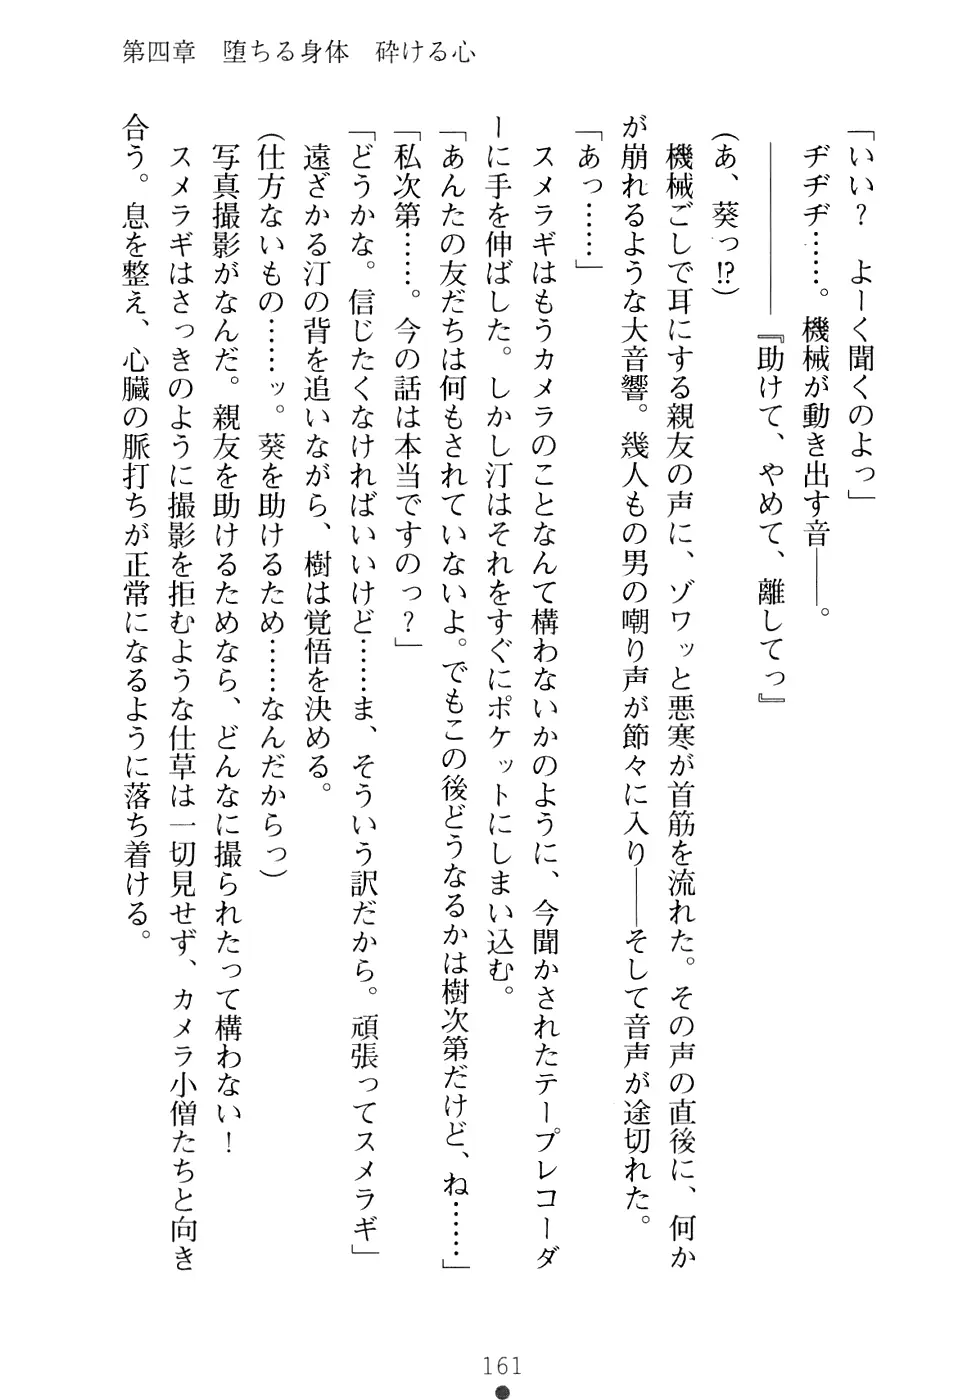 第四章　堕ちる身体　砕ける心
「いい？　よーく聞くのよっ」
　ヂヂヂ……。機械が動き出す音――。
　――――――『助けて、やめて、離してっ』
（あ、葵っ!?）
　機械ごしで耳にする親友の声に、ゾワッと悪寒が首筋を流れた。その声の直後に、何か
が崩れるような大音響。幾人もの男の嘲り声が節々に入り――そして音声が途切れた。
「あっ……」
　スメラギはもうカメラのことなんて構わないかのように、今聞かされたテープレコーダ
ーに手を伸ばした。しかし汀はそれをすぐにポケットにしまい込む。
「あんたの友だちは何もされていないよ。でもこの後どうなるかは樹次第だけど、ね……」
「私次第……。今の話は本当ですのっ？」
「どうかな。信じたくなければいいけど……ま、そういう訳だから。頑張ってスメラギ」
　遠ざかる汀の背を追いながら、樹は覚悟を決める。
（仕方ないもの……ッ。葵を助けるため……なんだからっ）
　写真撮影がなんだ。親友を助けるためなら、どんなに撮られたって構わない！
　スメラギはさっきのように撮影を拒むような仕草は一切見せず、カメラ小僧たちと向き
合う。息を整え、心臓の脈打ちが正常になるように落ち着ける。
161